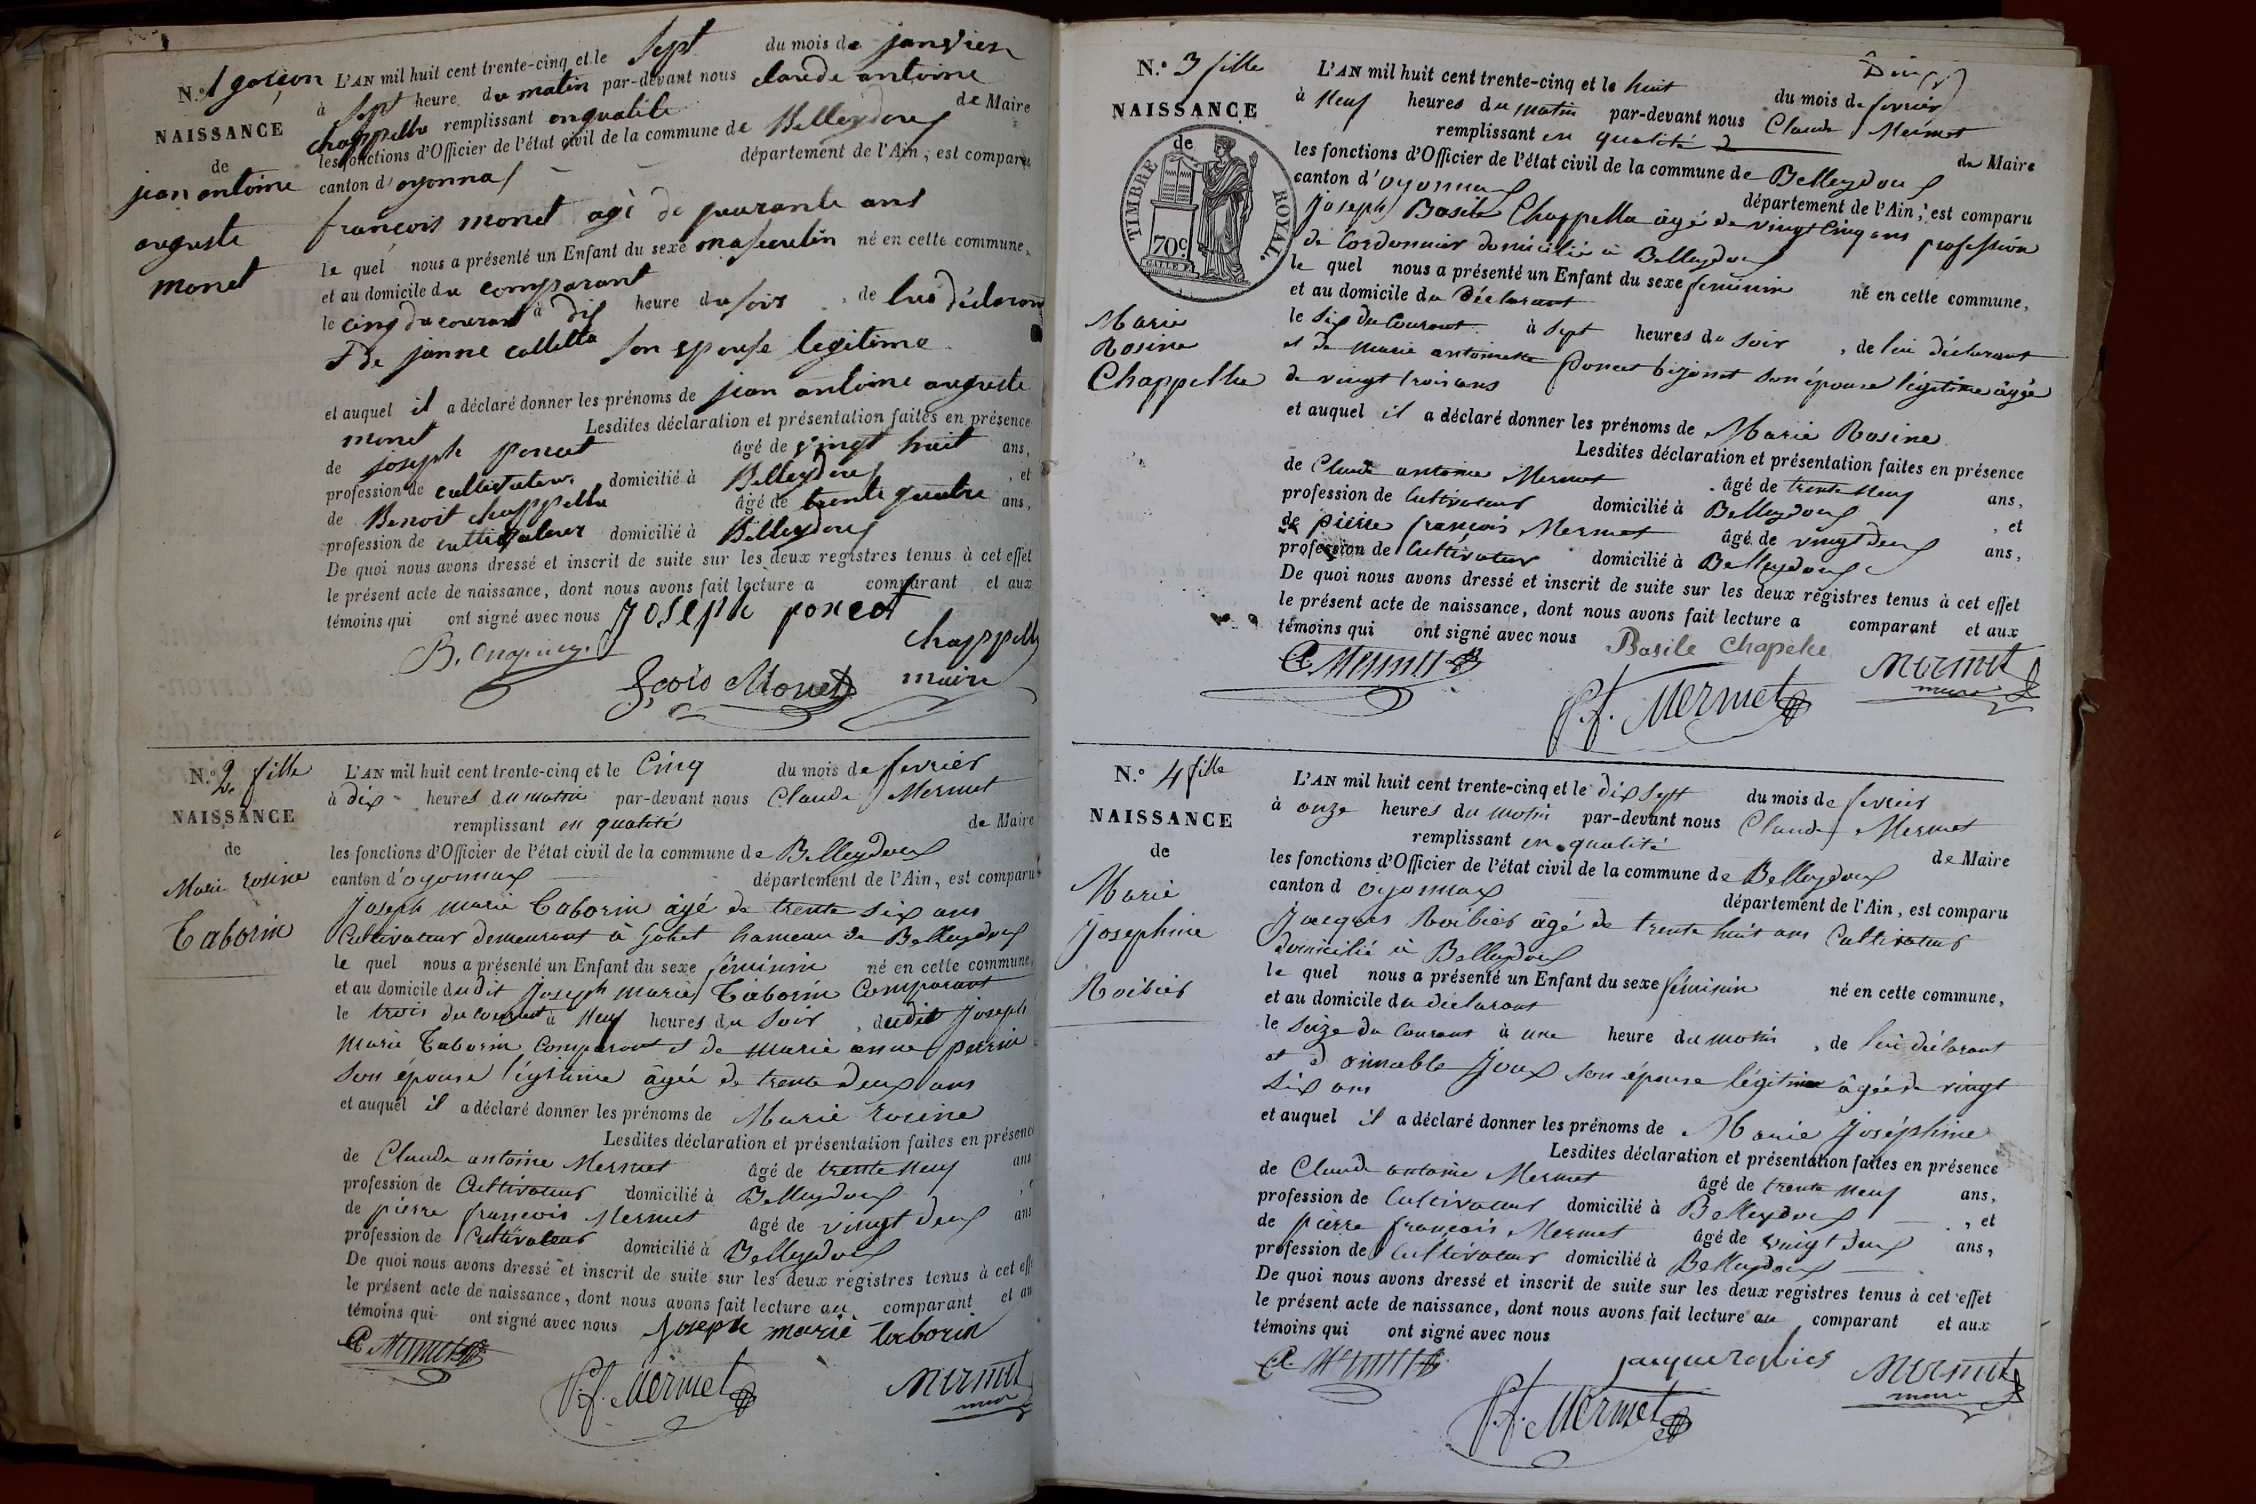 N.º 1 garçon
NAISSANCE
de
jean antoine
auguste
monet
L'AN mil huit cent trente-cinq et le sept du mois de janvier
à sept heure du matin par-devant nous claude antoine
chappellu remplissant enqualité de Maire
les fonctions d'Officier de l'état civil de la commune de Belleydoux
canton d'oyonnax département de l'Ain, est comparu
françois monet agé de quarante ans
le quel nous a présenté un Enfant du sexe masculin né en cette commune,
et au domicile du comparant
le cinq du courant à dix heure du soir, de lui déclarant
& de janne colletta son epouse legitime
et auquel il a déclaré donner les prénoms de jean antoine auguste
monet Lesdites déclaration et présentation faites en présence
de joseph poncet âgé de vingt huit ans,
profession de cultivateur domicilié à Belleydoux, et
de Benoit chappellu âgé de trente quatre ans,
profession de cultivateur domicilié à Belleydoux
De quoi nous avons dressé et inscrit de suite sur les deux registres tenus à cet effet
le présent acte de naissance, dont nous avons fait lecture a comparant et aux
témoins qui ont signé avec nous joseph poncet
chappellu
fçois Monet maire
N.º 2 fille
NAISSANCE
de
Marie rosine
Taborin
L'AN mil huit cent trente-cinq et le Cinq du mois de fevrier
à dix heures du matin par-devant nous Claude Mermet
remplissant en qualité de Maire
les fonctions d'Officier de l'état civil de la commune de Belleydoux
canton d'oyonnax département de l'Ain, est comparu
Joseph marie Taborin âgé de trente six ans
Cultivateur demeurant à gobet hameau de Belleydoux
le quel nous a présenté un Enfant du sexe féminin né en cette commune,
et au domicile dudit Joseph marie Taborin Comparant
le trois du courant à neuf heures du soir, dudit Joseph
marie Taborin Comparant et de marie anne perrin
son épouse légitime âgée de trente deux ans
et auquel il a déclaré donner les prénoms de Marie rosine
Lesdites déclaration et présentation faites en présence
de Claude antoine Mermet âgé de trente neuf ans
profession de Cultivateur domicilié à Belleydoux
de pierre françois Mermet âgé de vingt deux ans
profession de Cultivateur domicilié à Belleydoux
De quoi nous avons dressé et inscrit de suite sur les deux registres tenus à cet effet
le présent acte de naissance, dont nous avons fait lecture au comparant et au
témoins qui ont signé avec nous Joseph marie taborin
C A Mermet
P. f. Mermet
Mermet
maire
N.º 3 fille
NAISSANCE
de
TIMBRE ROYAL.
70c
Marie
Rosine
Chappellu
L'AN mil huit cent trente-cinq et le huit du mois de fevrier
à neuf heures du matin par-devant nous Claude Mermet
remplissant en qualité de Maire
les fonctions d'Officier de l'état civil de la commune de Belleydoux
canton d'oyonnax département de l'Ain, est comparu
Joseph Basile Chappellu âgé de vingt cinq ans profession
de Cordonnier domicilié à Belleydoux
le quel nous a présenté un Enfant du sexe feminin né en cette commune,
et au domicile du Déclarant
le six du Courant à sept heures du soir, de lui déclarant
et de marie antoinette poncet bijonet son épouse légitime âgée
de vingt trois ans
et auquel il a déclaré donner les prénoms de Marie Rosine
Lesdites déclaration et présentation faites en présence
de Claude antoine Mermet âgé de trente neuf ans,
profession de Cultivateur domicilié à Belleydoux, et
de pierre françois Mermet âgé de vingt deux ans,
profession de Cultivateur domicilié à Belleydoux
De quoi nous avons dressé et inscrit de suite sur les deux registres tenus à cet effet
le présent acte de naissance, dont nous avons fait lecture a comparant et aux
témoins qui ont signé avec nous Basile Chapelu
C A Mermet
P. f. Mermet
Mermet
maire
N.º 4 fille
NAISSANCE
de
Marie
Josephine
Roibier
L'AN mil huit cent trente-cinq et le dix sept du mois de fevrier
à onze heures du matin par-devant nous Claude Mermet
remplissant en qualité de Maire
les fonctions d'Officier de l'état civil de la commune de Belleydoux
canton d oyonnax département de l'Ain, est comparu
Jacques Roibier âgé de trente huit ans Cultivateur
domicilié à Belleydoux
le quel nous a présenté un Enfant du sexe féminin né en cette commune,
et au domicile du déclarant
le seize du Courant à une heure du matin, de lui déclarant
et d'aimable Joux son épouse légitime âgée de vingt
six ans
et auquel il a déclaré donner les prénoms de Marie Joséphine
Lesdites déclaration et présentation faites en présence
de Claude antoine Mermet âgé de trente neuf ans,
profession de Cultivateur domicilié à Belleydoux, et
de pierre françois Mermet âgé de vingt deux ans,
profession de Cultivateur domicilié à Belleydoux
De quoi nous avons dressé et inscrit de suite sur les deux registres tenus à cet effet
le présent acte de naissance, dont nous avons fait lecture au comparant et aux
témoins qui ont signé avec nous
C A Mermet
jacque roibier
P. f. Mermet
Mermet
maire